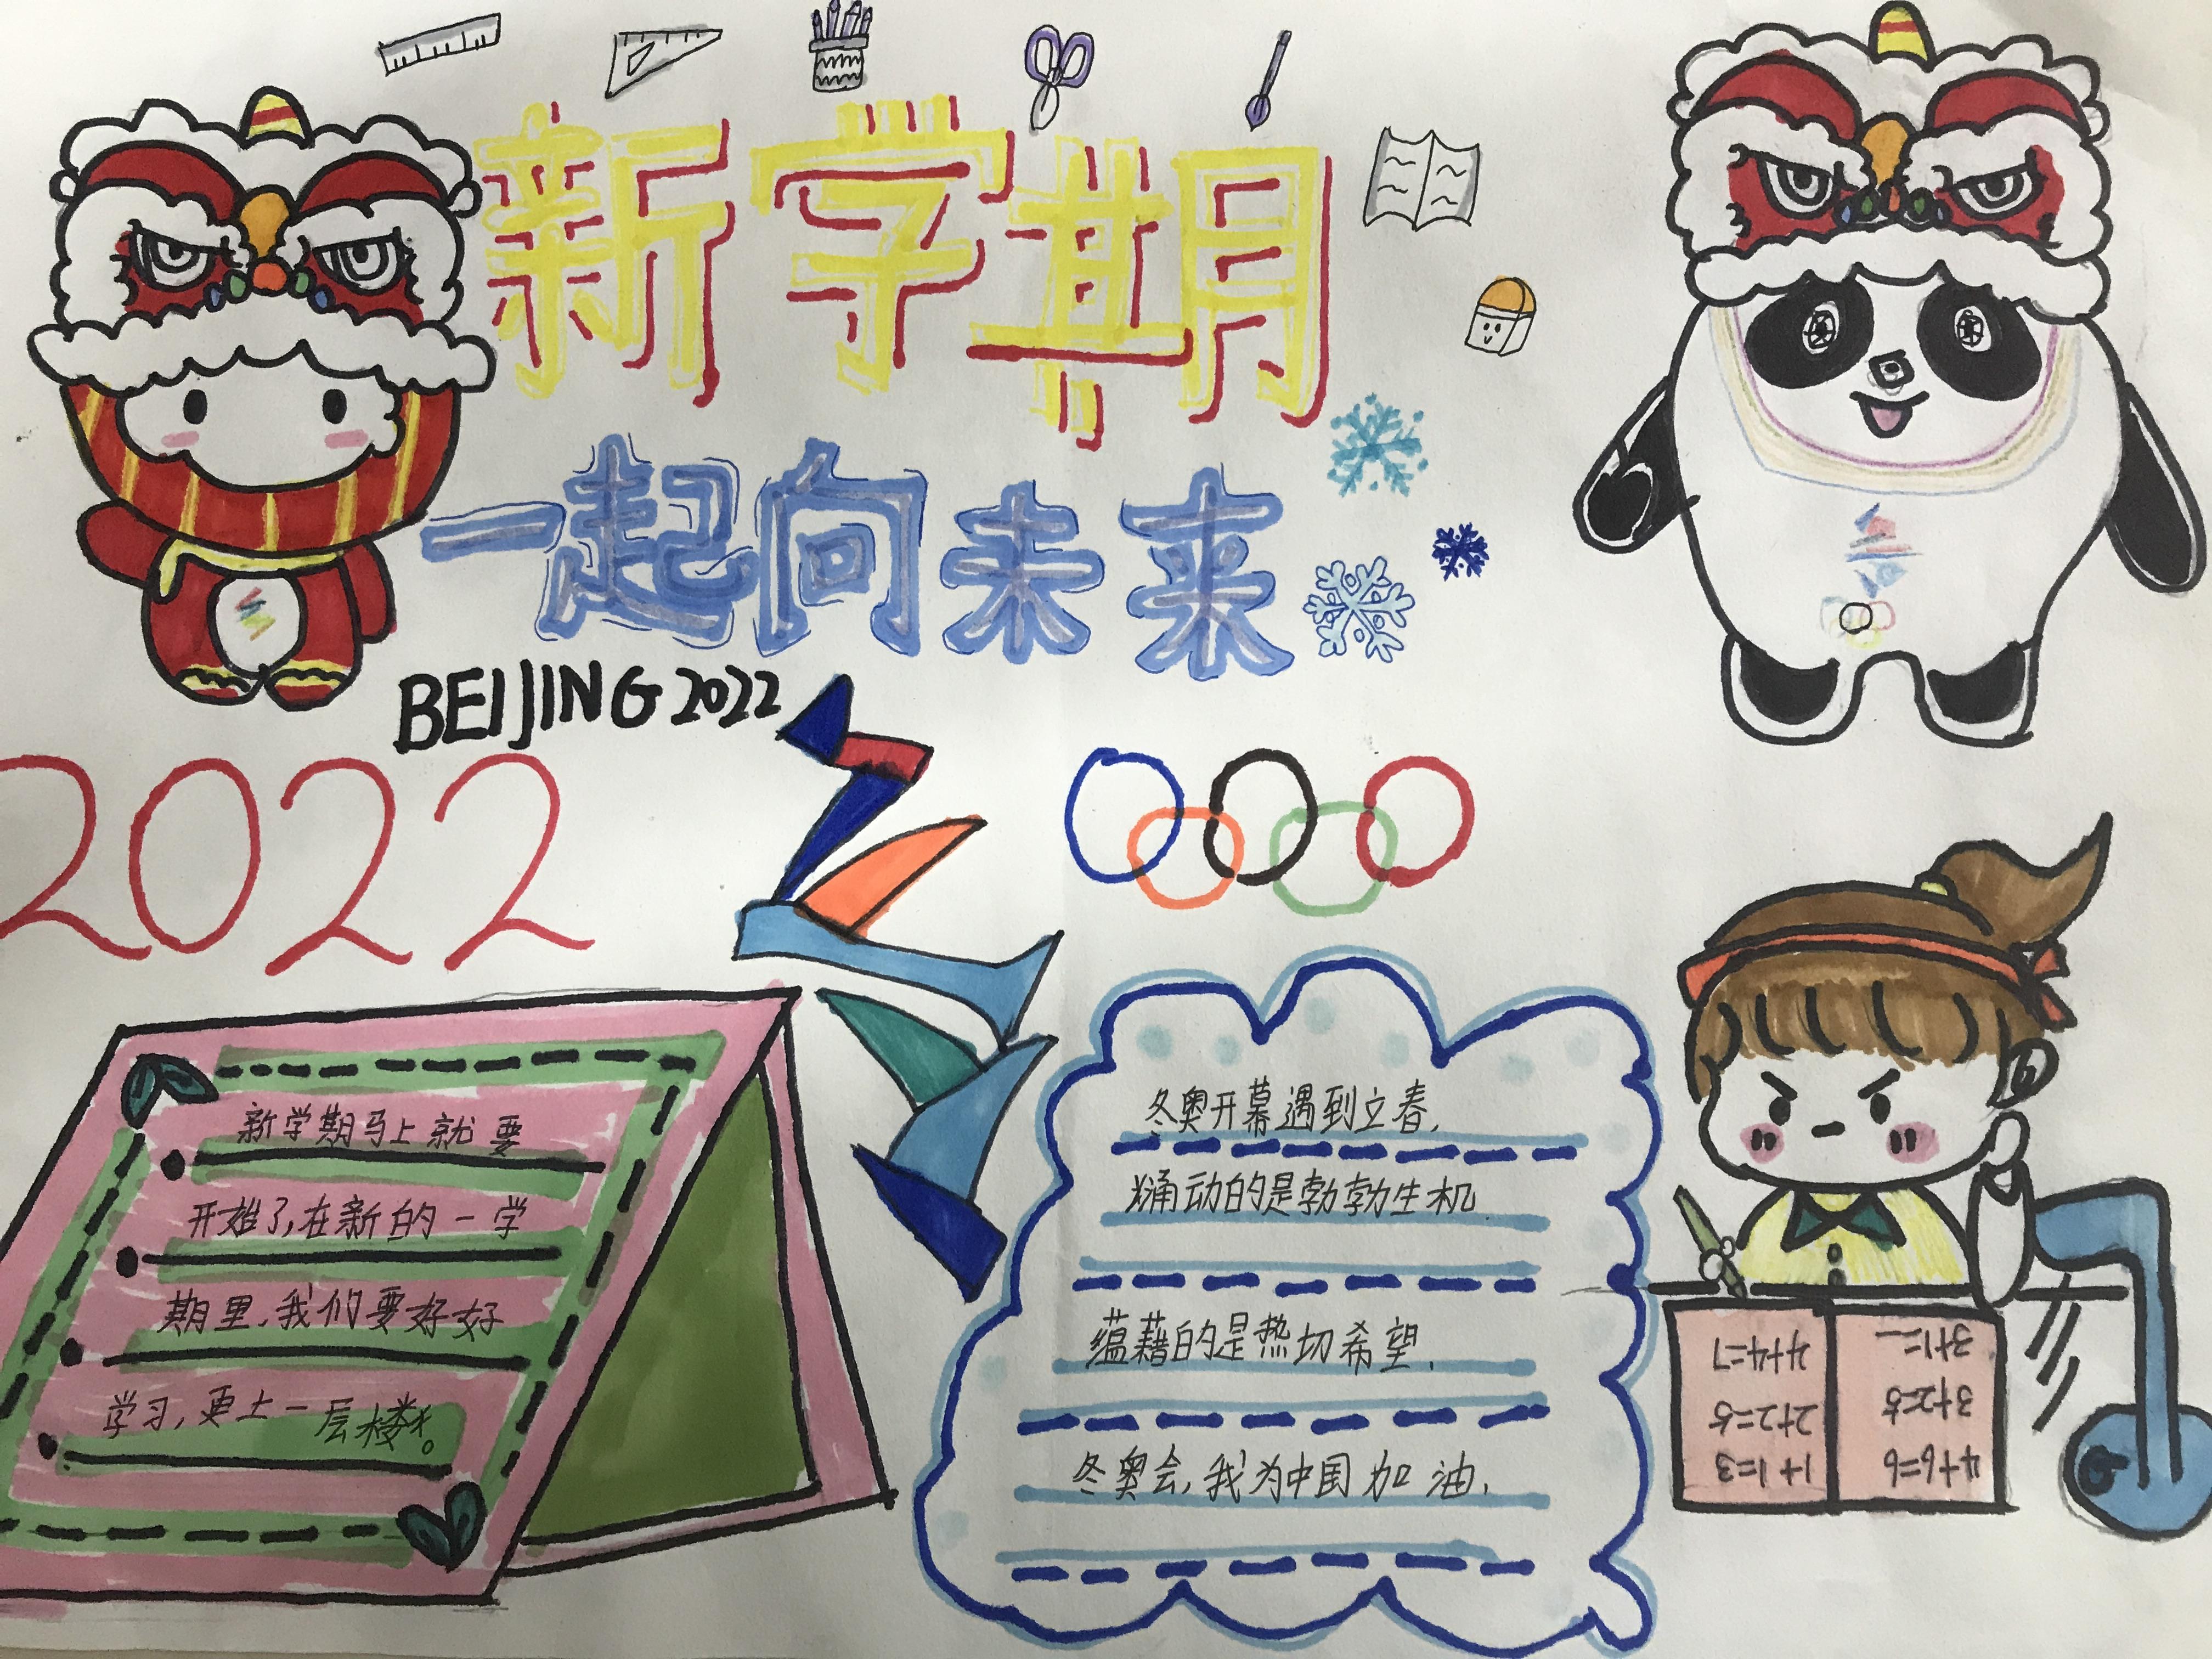 新学期
一起向未来
BEIJING 2022
2022
新学期马上就要
开始了,在新的一学
期里,我们要好好
学习,更上一层楼。
冬奥开幕遇到立春,
涌动的是勃勃生机
蕴藉的是热切希望,
冬奥会,我为中国加油,
4+6=6
3+2=5
3+1=
1+1=3
2+2=5
4+4=7